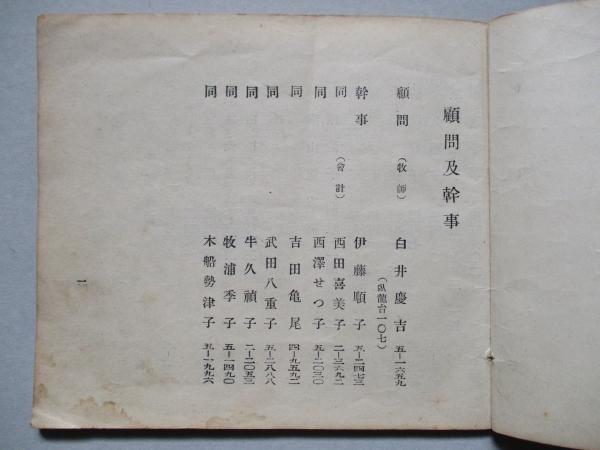 顧問及幹事
顧問（牧師）白井慶吉 五―一六五九
（臥龍台一〇七）
幹事 伊藤順子 五―二四七三
同（會計）西田喜美子 二―三六九二
同 西澤せつ子 五―二〇三〇
同 吉田亀尾 四―九五九二
同 武田八重子 五―二八八八
同 牛久禎子 二―二〇五三
同 牧浦季子 五―一四九〇
同 木船勢津子 五―一九九六
一